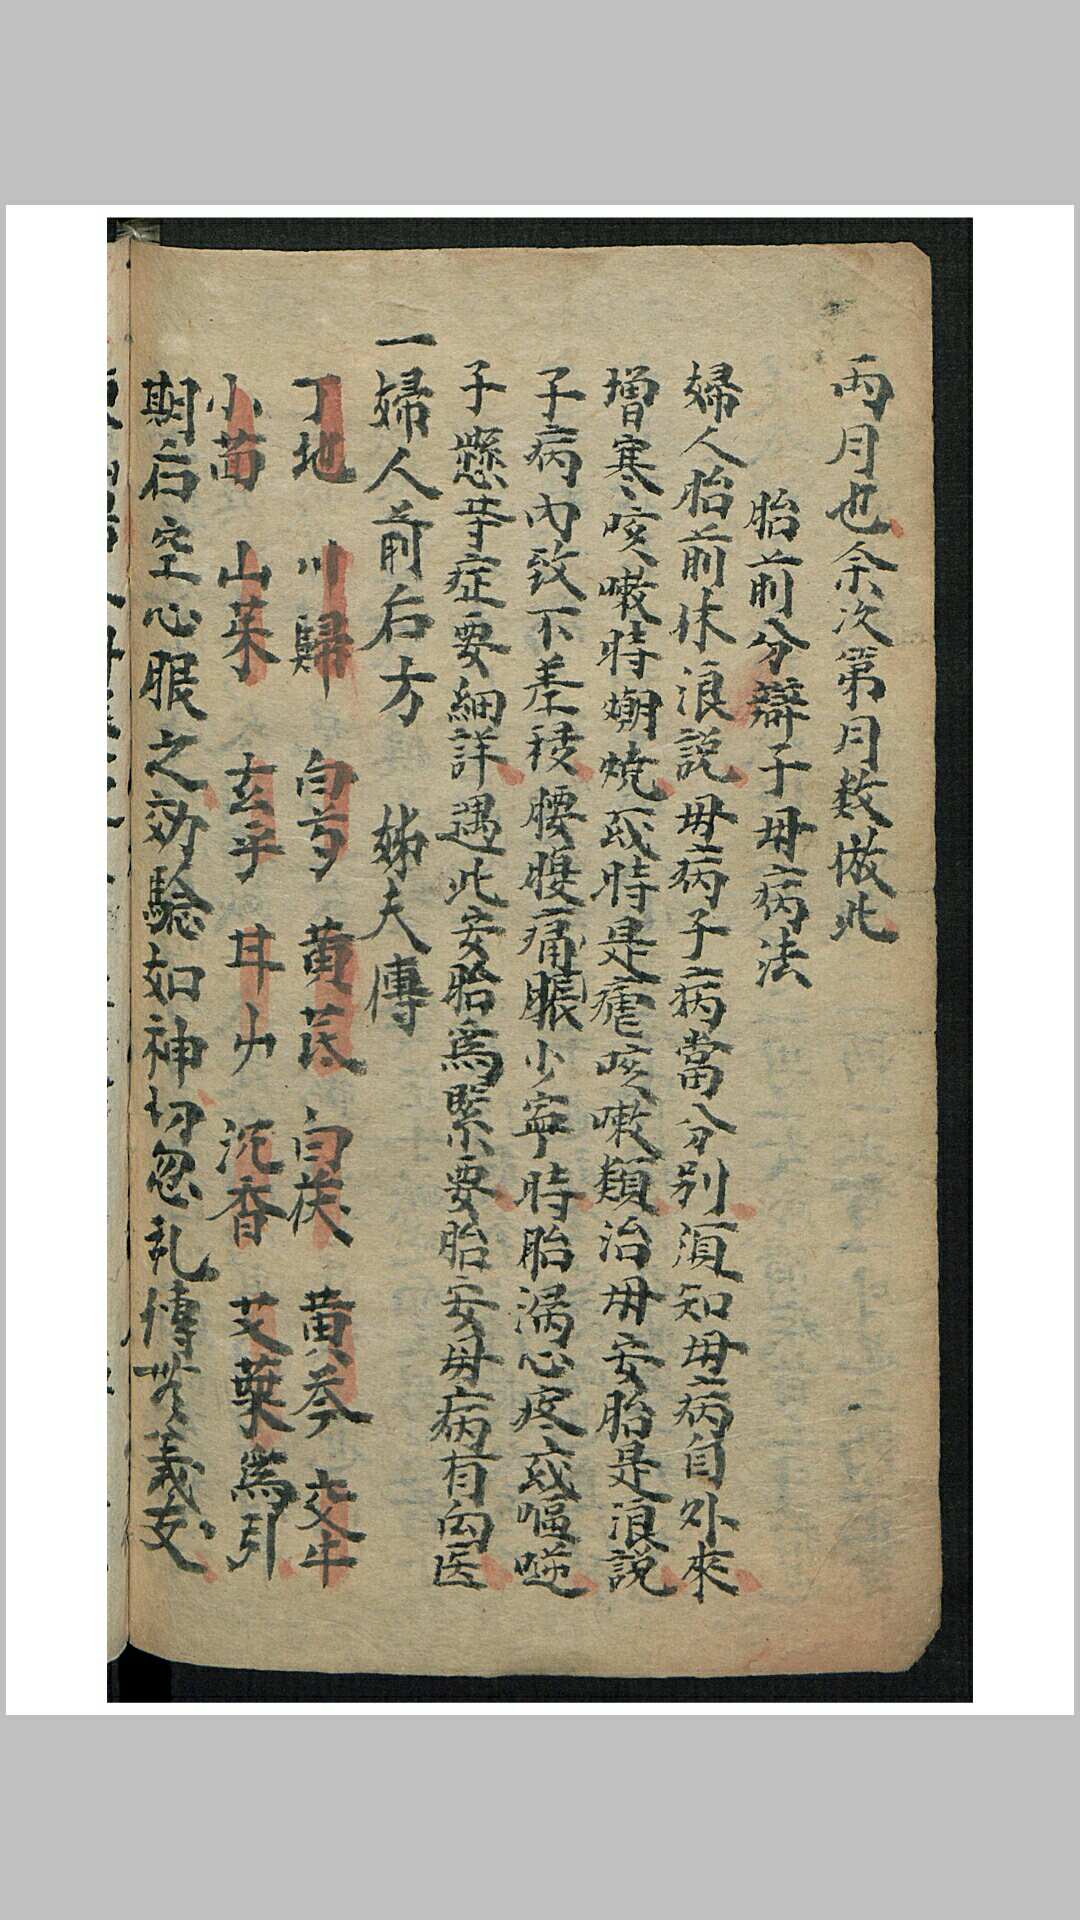 两月也余次第月数倣此
胎前分辯子毋病法
婦人胎前休浪說毋病子病當分別須知毋病自外來
增寒咳嗽時潮燒或時是瘧咳嗽類治毋安胎是浪說
子病内致不差移腰腹痛脹少寧時胎漏心疼或嘔逆
子懸等症要細詳遇此安胎爲緊要胎安毋病有向医
一婦人前后方 姊夫傳
丁地 川歸 白芍 黄芪 白茯 黄芩 交牛
小茴 山茱 玄乎 甘艸 沉香 艾葉爲引
期后空心服之効驗如神切忽乱傳無義支